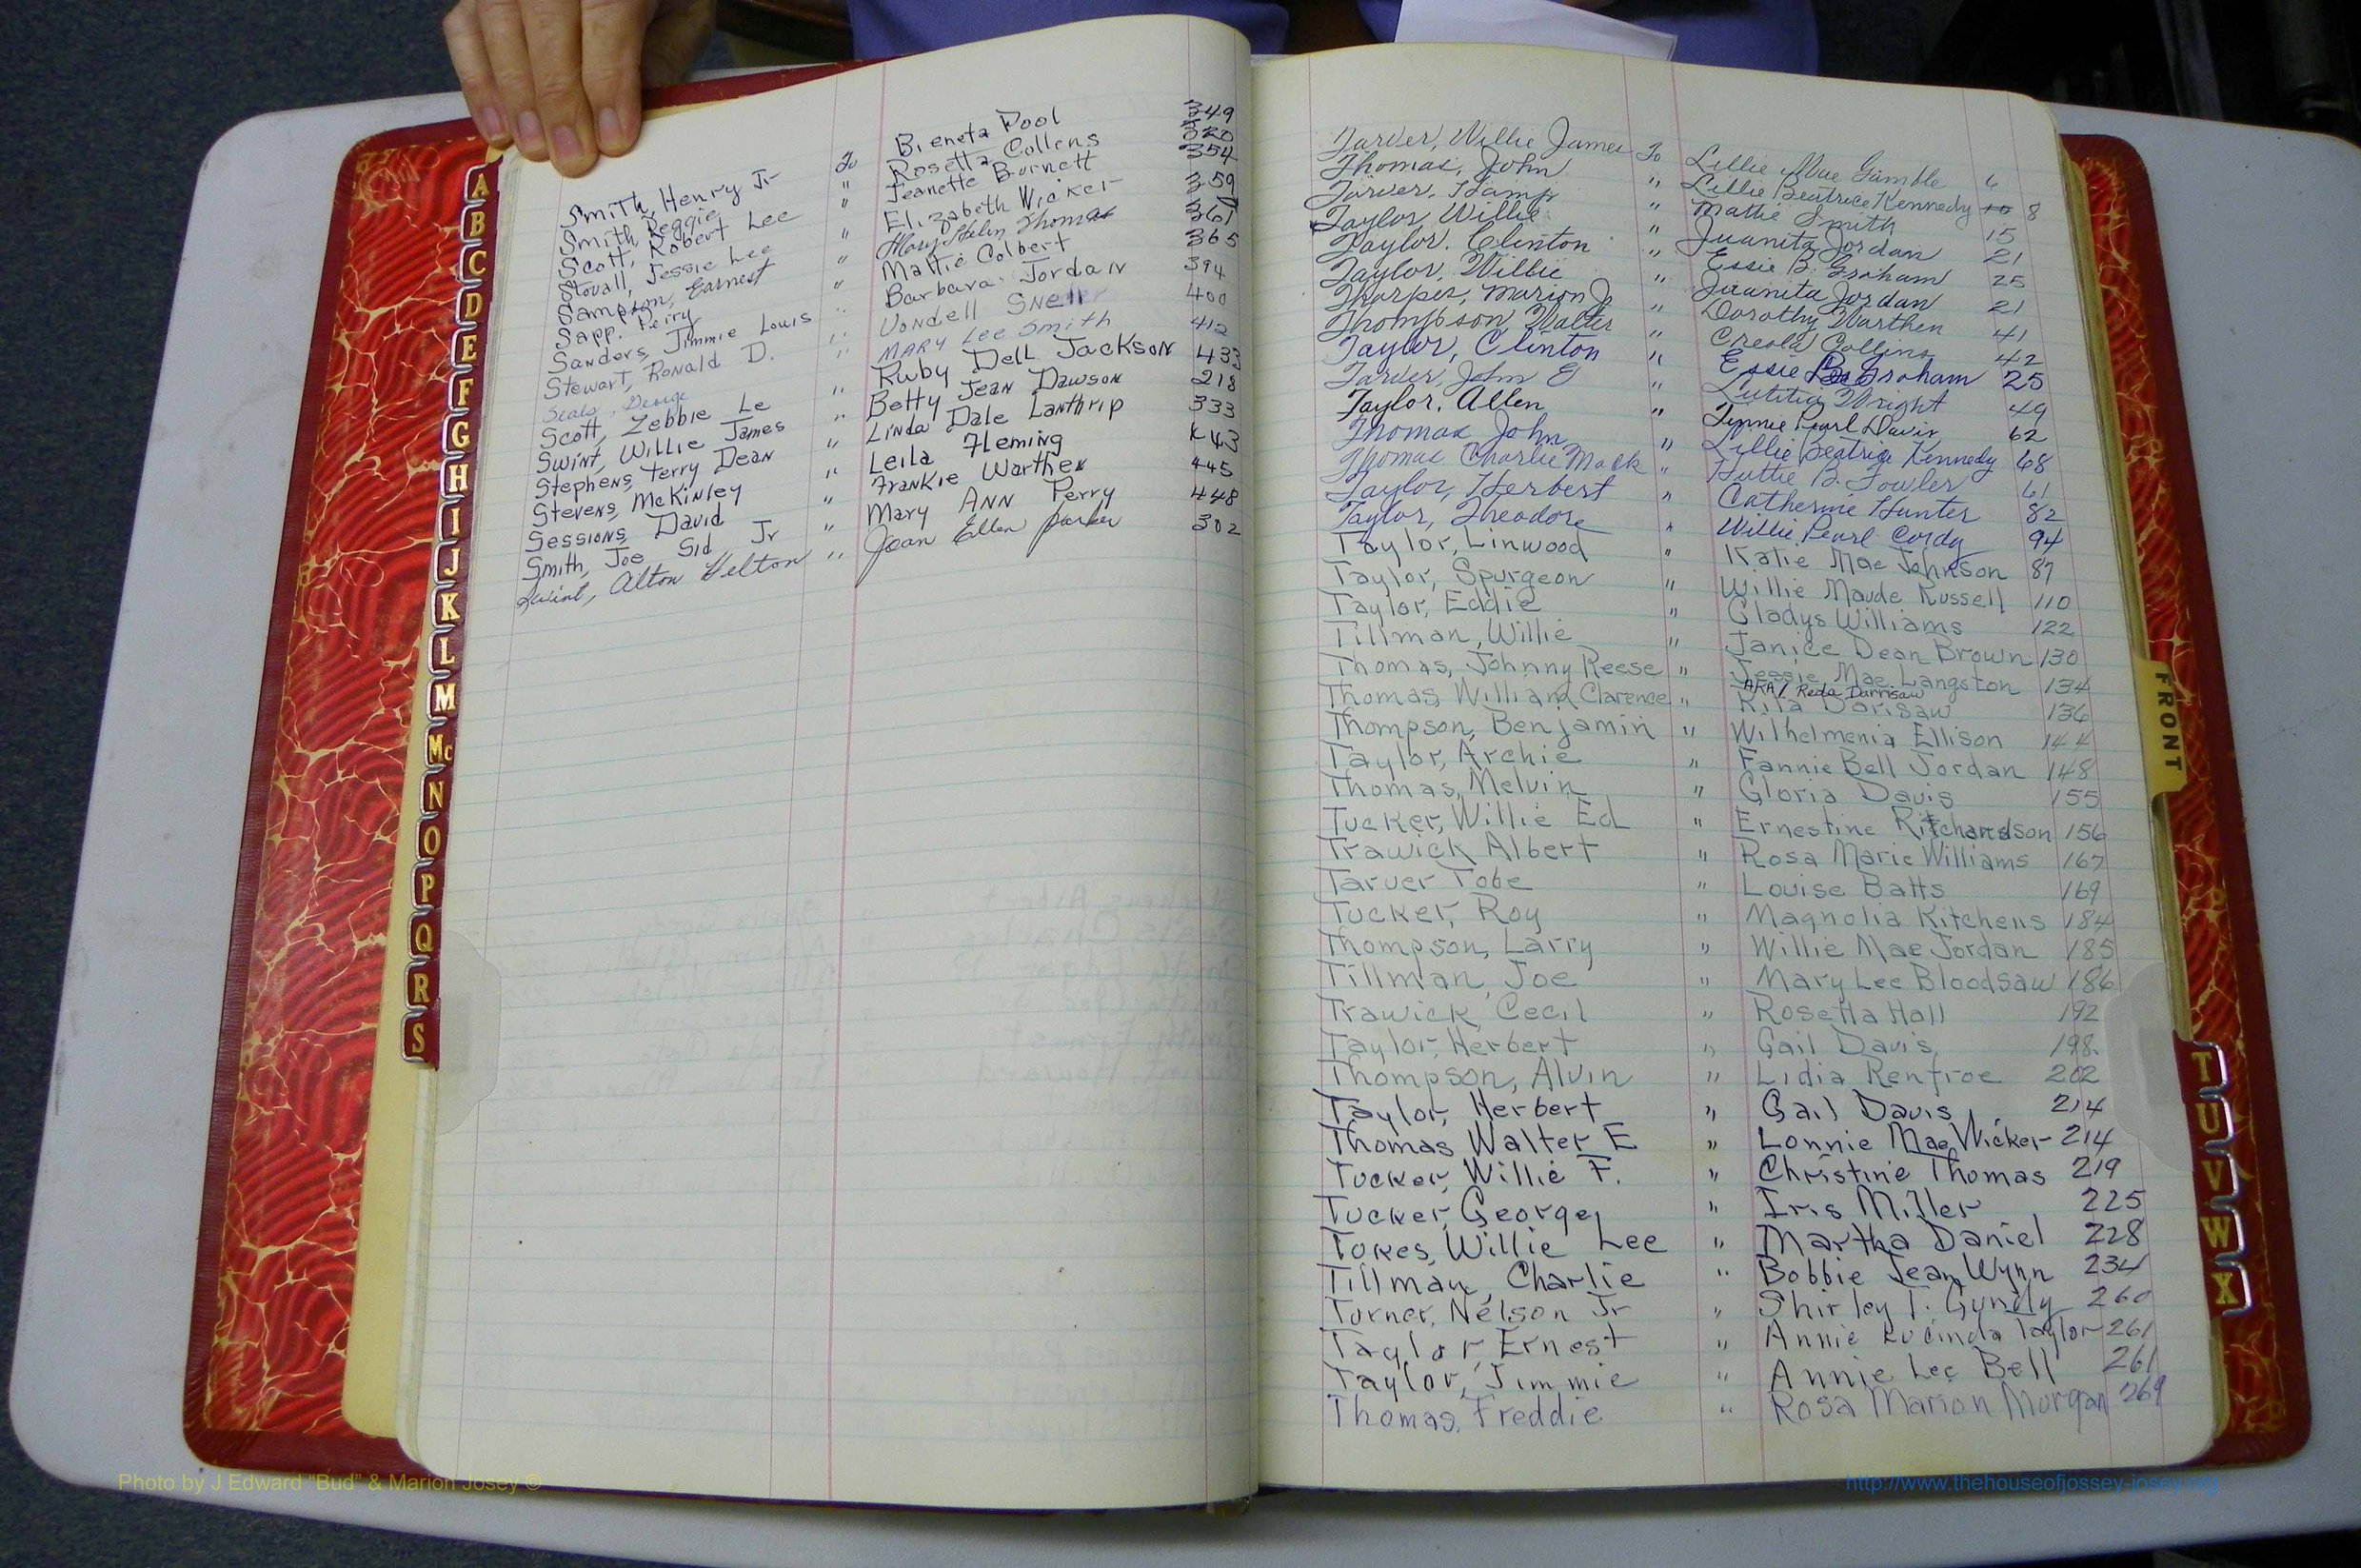 Smith, Henry Jr To Bieneta Pool 349
Smith, Reggie " Rosetta Collens 320
Scott, Robert Lee " Jeanette Burnett 354
Stovall, Jessie Lee " Elizabeth Wicker 359
Sampson, Earnest " Mary Helen Thomas 361
Sapp. Perry " Mattie Colbert 365
Sanders, Jimmie Louis " Barbara Jordan 394
Stewart, Ronald D. " Vondell Snell 400
Seals, George " MARY Lee Smith 412
Scott, Zebbie Le " Ruby Dell Jackson 433
Swint, Willie James " Betty Jean Dawson 218
Stephens, Terry Dean " Linda Dale Lanthrip 333
Stevens, McKinley " Leila Fleming 443
Sessions, David " Frankie Warthen 445
Smith, Joe Sid Jr " Mary Ann Perry 448
Swint, Alton Helton " Jean Ellen Parker 302
A
B
C
D
E
F
G
H
I
J
K
L
M
Mc
N
O
P
Q
R
S
Tarver, Willie James To Lillie Mae Gamble 6
Thomas, John " Lillie Beatrice Kennedy 10 8
Tarver, Hamp " Mattie Smith 15
Taylor, Willie " Juanita Jordan 21
Taylor, Clinton " Essie B. Graham 25
Taylor, Willie " Juanita Jordan 21
Tharpes, Marion J " Dorothy Warthen 41
Thompson, Walter " Creola Collins 42
Taylor, Clinton " Essie B Graham 25
Tarver, John E " Lutitia Wright 49
Taylor, Allen " Jennie Pearl Davis 62
Thomas John " Lillie Beatrice Kennedy 68
Thomas Charlie Mack " Hattie B. Fowler 61
Taylor, Herbert " Catherine Hunter 82
Taylor, Theodore " Willie Pearl Cordy 94
Taylor, Linwood " Katie Mae Johnson 87
Taylor, Spurgeon " Willie Maude Russell 110
Taylor, Eddie " Gladys Williams 122
Tillman, Willie " Janice Dean Brown 130
Thomas, Johnny Reese " Jessie Mae Langston 134
AKA/ Reda Darrisaw
Thomas, William Clarence " Rita Dorisaw 136
Thompson, Benjamin " Wilhelmenia Ellison 144
Taylor, Archie " Fannie Bell Jordan 148
Thomas, Melvin " Gloria Davis 155
Tucker, Willie Ed " Ernestine Ritchardson 156
Trawick Albert " Rosa Marie Williams 167
Tarver Tobe " Louise Batts 169
Tucker, Roy " Magnolia Kitchens 184
Thompson, Larry " Willie Mae Jordan 185
Tillman, Joe " Mary Lee Bloodsaw 186
Trawick, Cecil " Rosetta Hall 192
Taylor, Herbert " Gail Davis 198
Thompson, Alvin " Lidia Renfroe 202
Taylor, Herbert " Gail Davis 214
Thomas Walter E " Lonnie Mae Wicker 214
Tucker, Willie F. " Christine Thomas 219
Tucker, George " Iris Miller 225
Tokes, Willie Lee " Martha Daniel 228
Tillman, Charlie " Bobbie Jean Wynn 234
Turner, Nelson Jr " Shirley T. Gundy 260
Taylor, Ernest " Annie Lucinda Taylor 261
Taylor, Jimmie " Annie Lee Bell 261
Thomas, Freddie " Rosa Marion Morgan 269
FRONT
T
U
V
W
X
Photo by J Edward "Bud" & Marion Josey ©
http://www.thehouseofjossey-josey.org